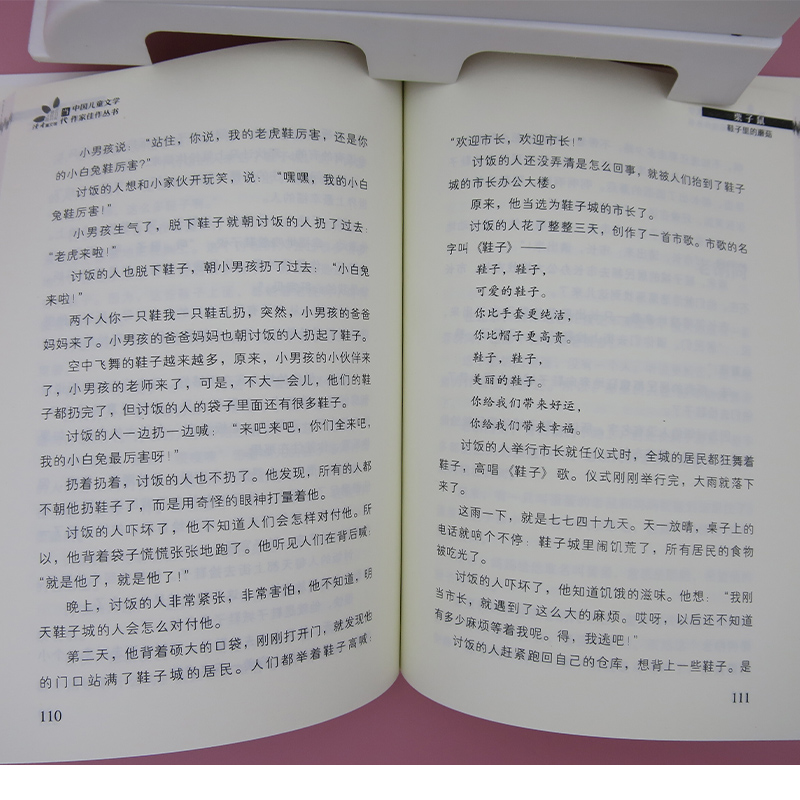 当代
中国儿童文学
作家佳作丛书
小男孩说：“站住，你说，我的老虎鞋厉害，还是你
的小白兔鞋厉害？”
讨饭的人想和小家伙开玩笑，说：“嘿嘿，我的小白
兔鞋厉害！”
小男孩生气了，脱下鞋子就朝讨饭的人扔了过去：
“老虎来啦！”
讨饭的人也脱下鞋子，朝小男孩扔了过去：“小白兔
来啦！”
两个人你一只鞋我一只鞋乱扔，突然，小男孩的爸爸
妈妈来了。小男孩的爸爸妈妈也朝讨饭的人扔起了鞋子。
空中飞舞的鞋子越来越多，原来，小男孩的小伙伴来
了，小男孩的老师来了，可是，不大一会儿，他们的鞋
子都扔完了，但讨饭的人的袋子里面还有很多鞋子。
讨饭的人一边扔一边喊：“来吧来吧，你们全来吧，
我的小白兔最厉害呀！”
扔着扔着，讨饭的人也不扔了。他发现，所有的人都
不朝他扔鞋子了，而是用奇怪的眼神打量着他。
讨饭的人吓坏了，他不知道人们会怎样对付他。所
以，他背着袋子慌慌张张地跑了。他听见人们在背后喊：
“就是他了，就是他了！”
晚上，讨饭的人非常紧张，非常害怕，他不知道，明
天鞋子城的人会怎么对付他。
第二天，他背着硕大的口袋，刚刚打开门，就发现他
的门口站满了鞋子城的居民。人们都举着鞋子高喊：
110
栗子鼠
鞋子里的蘑菇
“欢迎市长，欢迎市长！”
讨饭的人还没弄清是怎么回事，就被人们抬到了鞋子
城的市长办公大楼。
原来，他当选为鞋子城的市长了。
讨饭的人花了整整三天，创作了一首市歌。市歌的名
字叫《鞋子》——
鞋子，鞋子，
可爱的鞋子。
你比手套更纯洁，
你比帽子更高贵。
鞋子，鞋子，
美丽的鞋子。
你给我们带来好运，
你给我们带来幸福。
讨饭的人举行市长就任仪式时，全城的居民都狂舞着
鞋子，高唱《鞋子》歌。仪式刚刚举行完，大雨就落下
来了。
这雨一下，就是七七四十九天。天一放晴，桌子上的
电话就响个不停：鞋子城里闹饥荒了，所有居民的食物
被吃光了。
讨饭的人吓坏了，他知道饥饿的滋味。他想：“我刚
当市长，就遇到了这么大的麻烦。哎呀，以后还不知道
有多少麻烦等着我呢。得，我逃吧！”
讨饭的人赶紧跑回自己的仓库，想背上一些鞋子。是
111